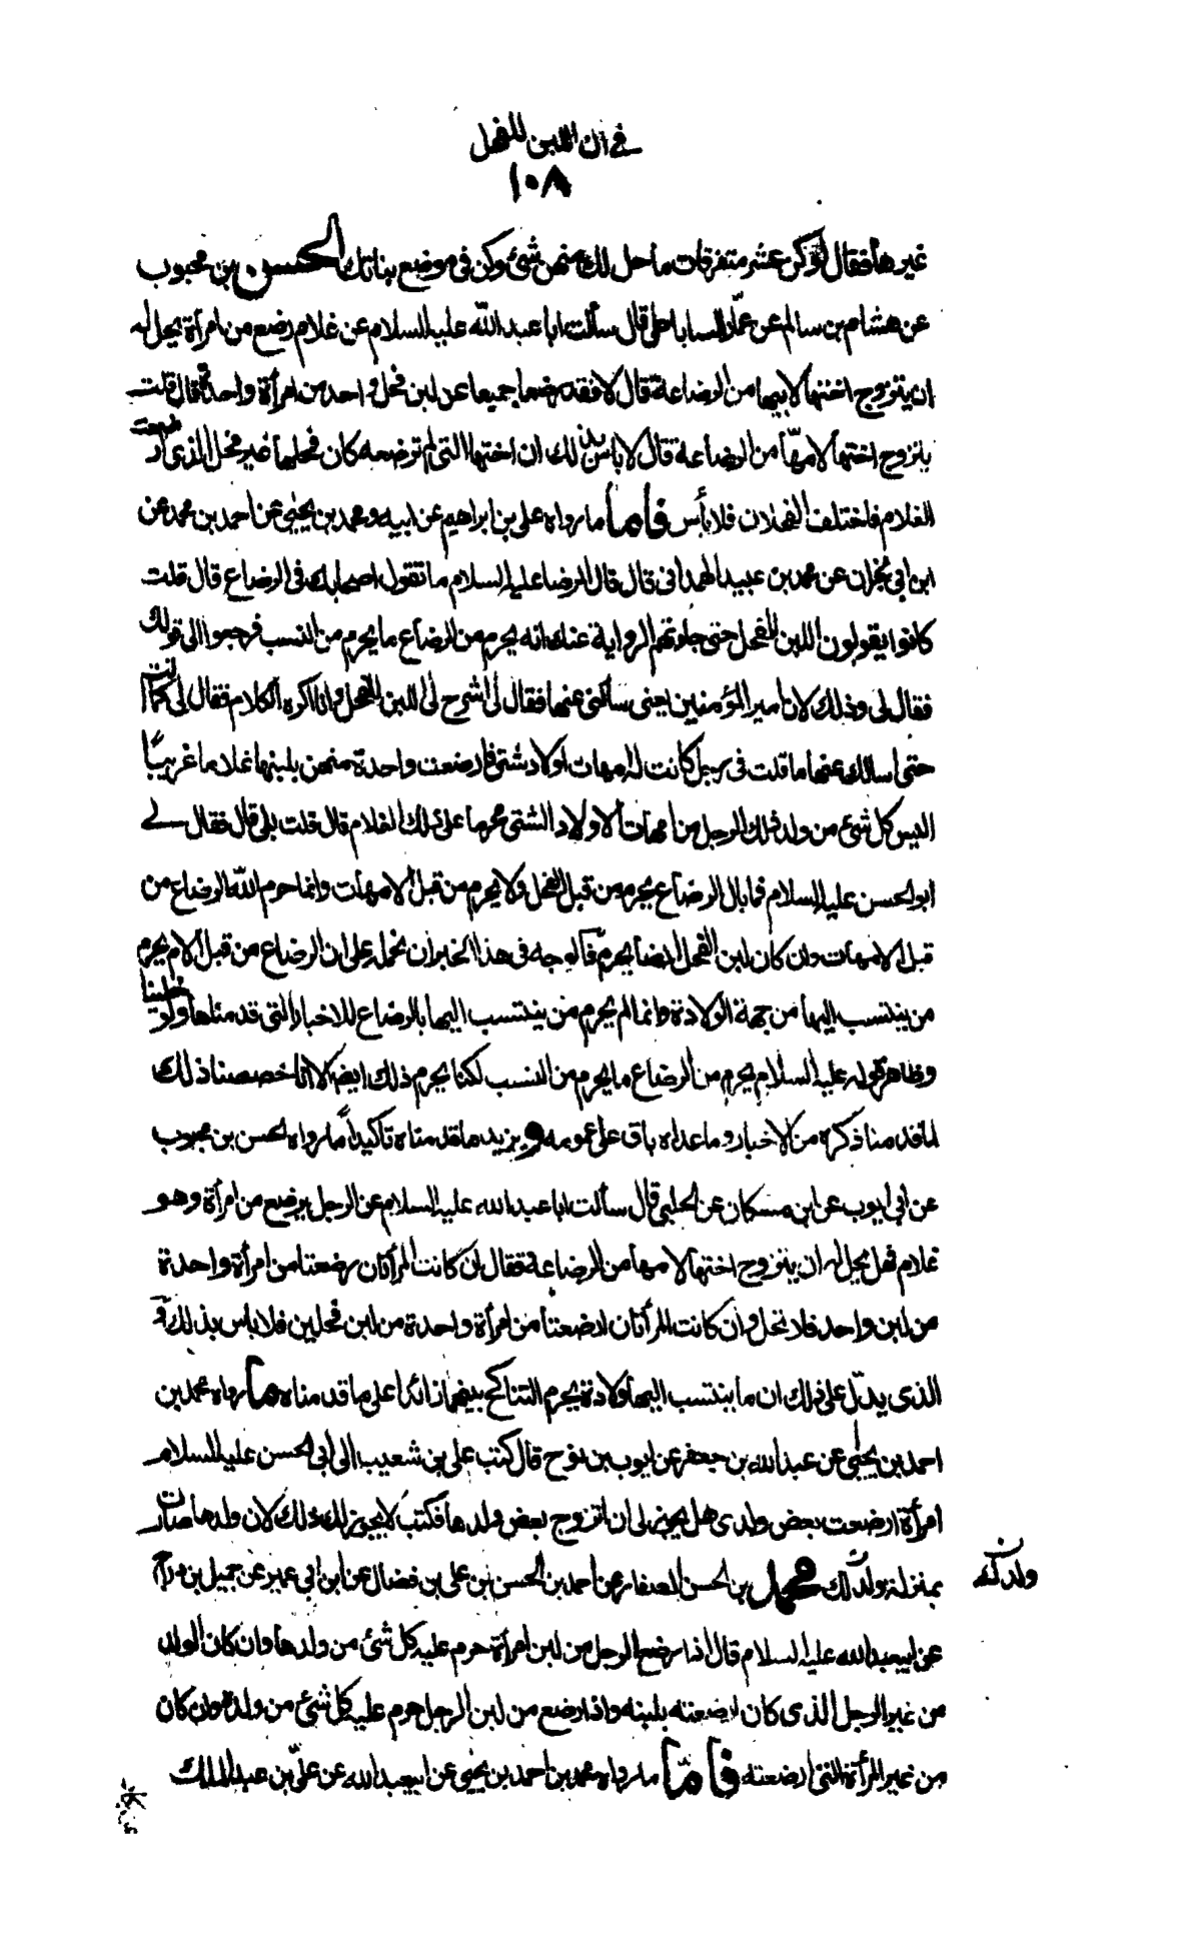 في ان اللبن للفحل
١٠٨
غيرها فقال لو كن عشر متفرقات ما حل لك منهن شئ وكن في موضع بناتك الحسن بن محبوب
عن هشام بن سالم عن عمار الساباطي قال سألت ابا عبد الله عليه السلام عن غلام رضع من امرأة يحل له
ان يتزوج اختها لابيها من الرضاعة قال لا فقد رضعا جميعا من لبن فحل واحد من امرأة واحدة قال قلت
يتزوج اختها لامها من الرضاعة قال لا باس بذلك ان اختها التي لم ترضعه كان فحلها غير فحل الذي ارضعت
الغلام فاختلف الفحلان فلا بأس فاما ما رواه علي بن ابراهيم عن ابيه ومحمد بن يحيى عن احمد بن محمد عن
ابن ابي نجران عن محمد بن عبيد الهمداني قال قال الرضا عليه السلام ما تقول اصحابك في الرضاع قال قلت
كانوا يقولون اللبن للفحل حتى جاءتهم الرواية عنك انه يحرم من الرضاع ما يحرم من النسب فرجعوا الى قولك
فقال لي وذلك لان امير المؤمنين يعني سألني عنها فقال لي اشرح لي اللبن للفحل وانا اكره الكلام فقال لي كما انت
حتى اسالك عنها ما قلت في رجل كانت له امهات اولاد شتى فارضعت واحدة منهن بلبنها غلاما غريبا
اليس كل شئ من ولد ذلك الرجل من امهات الاولاد الشتى محرما على ذلك الغلام قال قلت بلى قال فقال لي
ابو الحسن عليه السلام فما بال الرضاع يحرم من قبل الفحل ولا يحرم من قبل الامهات وانما حرم الله الرضاع من
قبل الامهات وان كان لبن الفحل ايضا يحرم فالوجه في هذا الخبر ان نحمله على ان الرضاع من قبل الام يحرم
من ينتسب اليها من جهة الولادة وانما لم يحرم من ينتسب اليها بالرضاع للاخبار التي قدمناها ولو خلينا
وظاهر قوله عليه السلام يحرم من الرضاع ما يحرم من النسب لكنا نحرم ذلك ايضا الا انا خصصنا ذلك
لما قدمنا ذكره من الاخبار وما عداه باق على عمومه ويزيد ما قدمناه تأكيدا ما رواه الحسن بن محبوب
عن ابي ايوب عن ابن مسكان عن الحلبي قال سألت ابا عبد الله عليه السلام عن الرجل يرضع من امرأة وهو
غلام فهل يحل له ان يتزوج اختها لامها من الرضاعة فقال ان كانت المرأتان رضعتا من امرأة واحدة
من لبن واحد فلا تحل وان كانت المرأتان ارضعتا من امرأة واحدة من لبن فحلين فلا باس بذلك و
الذي يدل على ذلك ان ما ينتسب اليها ولادة يحرم التناكح بينهما زائدا على ما قدمناه ما رواه محمد بن
احمد بن يحيى عن عبد الله بن جعفر عن ايوب بن نوح قال كتب علي بن شعيب الى ابي الحسن عليه السلام
امرأة ارضعت بعض ولدي هل يجوز لي ان اتزوج بعض ولدها فكتب لا يجوز لك ذلك لان ولدها صارت
بمنزلة ولدك محمد بن الحسن الصفار عن احمد بن الحسن بن علي بن فضال عن ابن ابي عمير عن جميل بن دراج
عن ابي عبد الله عليه السلام قال اذا رضع الرجل من لبن امرأة حرم عليه كل شئ من ولدها وان كان الولد
من غير الرجل الذي كان ارضعته بلبنه واذا رضع من لبن الرجل حرم عليه كل شئ من ولده وان كان
من غير المرأة التي ارضعته فاما ما رواه محمد بن احمد بن يحيى عن ابي عبد الله عن علي بن عبد الملك